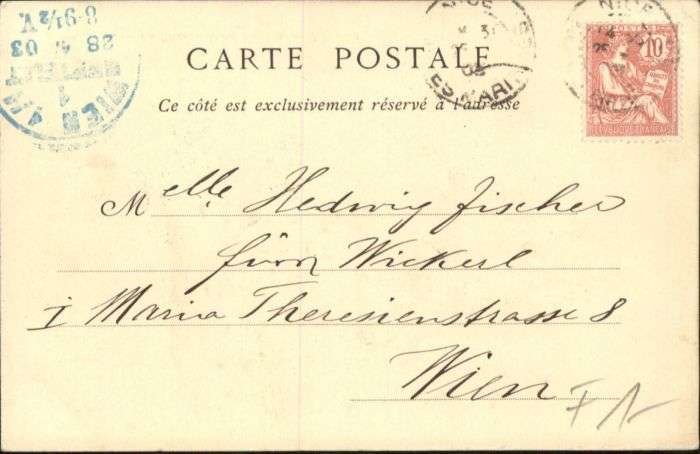 CARTE POSTALE
Ce côté est exclusivement réservé à l'adresse
Melle Hedwig Fischer
Wickerl
I Maria Theresienstrasse 8
Wien
NICE
03
ES MARI
NICE
10
REPUBLIQUE FRANÇAISE
WIEN
1
28 03
8-9½V.